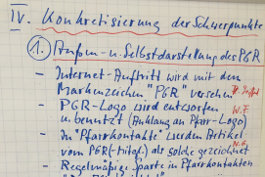 IV. Konkretisierung der Schwerpunkte
1. Außen- u. Selbstdarstellung des PGR
- Internet-Auftritt wird mit dem
Markenzeichen "PGR" versehen
- PGR-Logo wird entworfen
u. benutzt (Anhang an Pfar-Logo)
- In "Pfarrkontakte" werden Artikel
vom PGR (-Mitgl.) als solche gezeichnet
- Regelmäßige Sparte in Pfarrkontakten